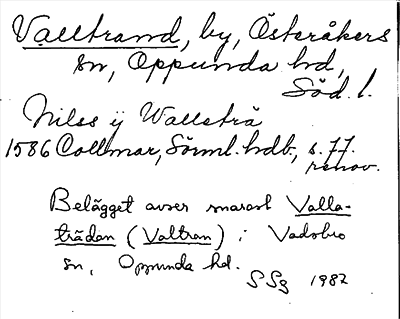 Valltrand, by, Österåkers
sn, Oppunda hd,
Söd. l.
Nilss ÿ Wallsträ
1586 Collmar, Sörml. hdb., s. 77.
renov.
Belägget avser snarast Valla-
trädan (Valtran) i Vadsbro
sn, Oppunda hd.
SSg 1982